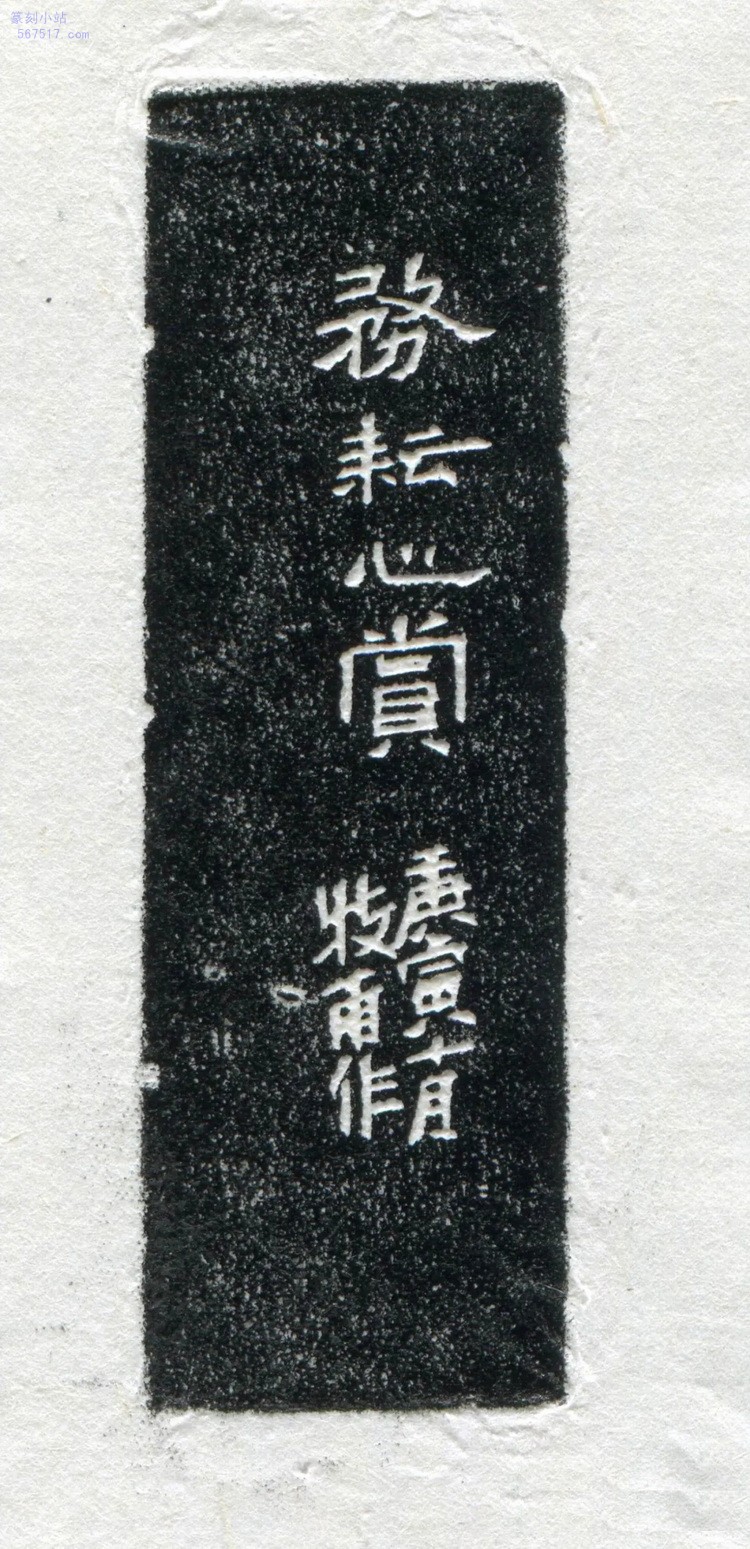 篆刻小站
567517.com
務耘心賞
庚寅十月
牧甫作